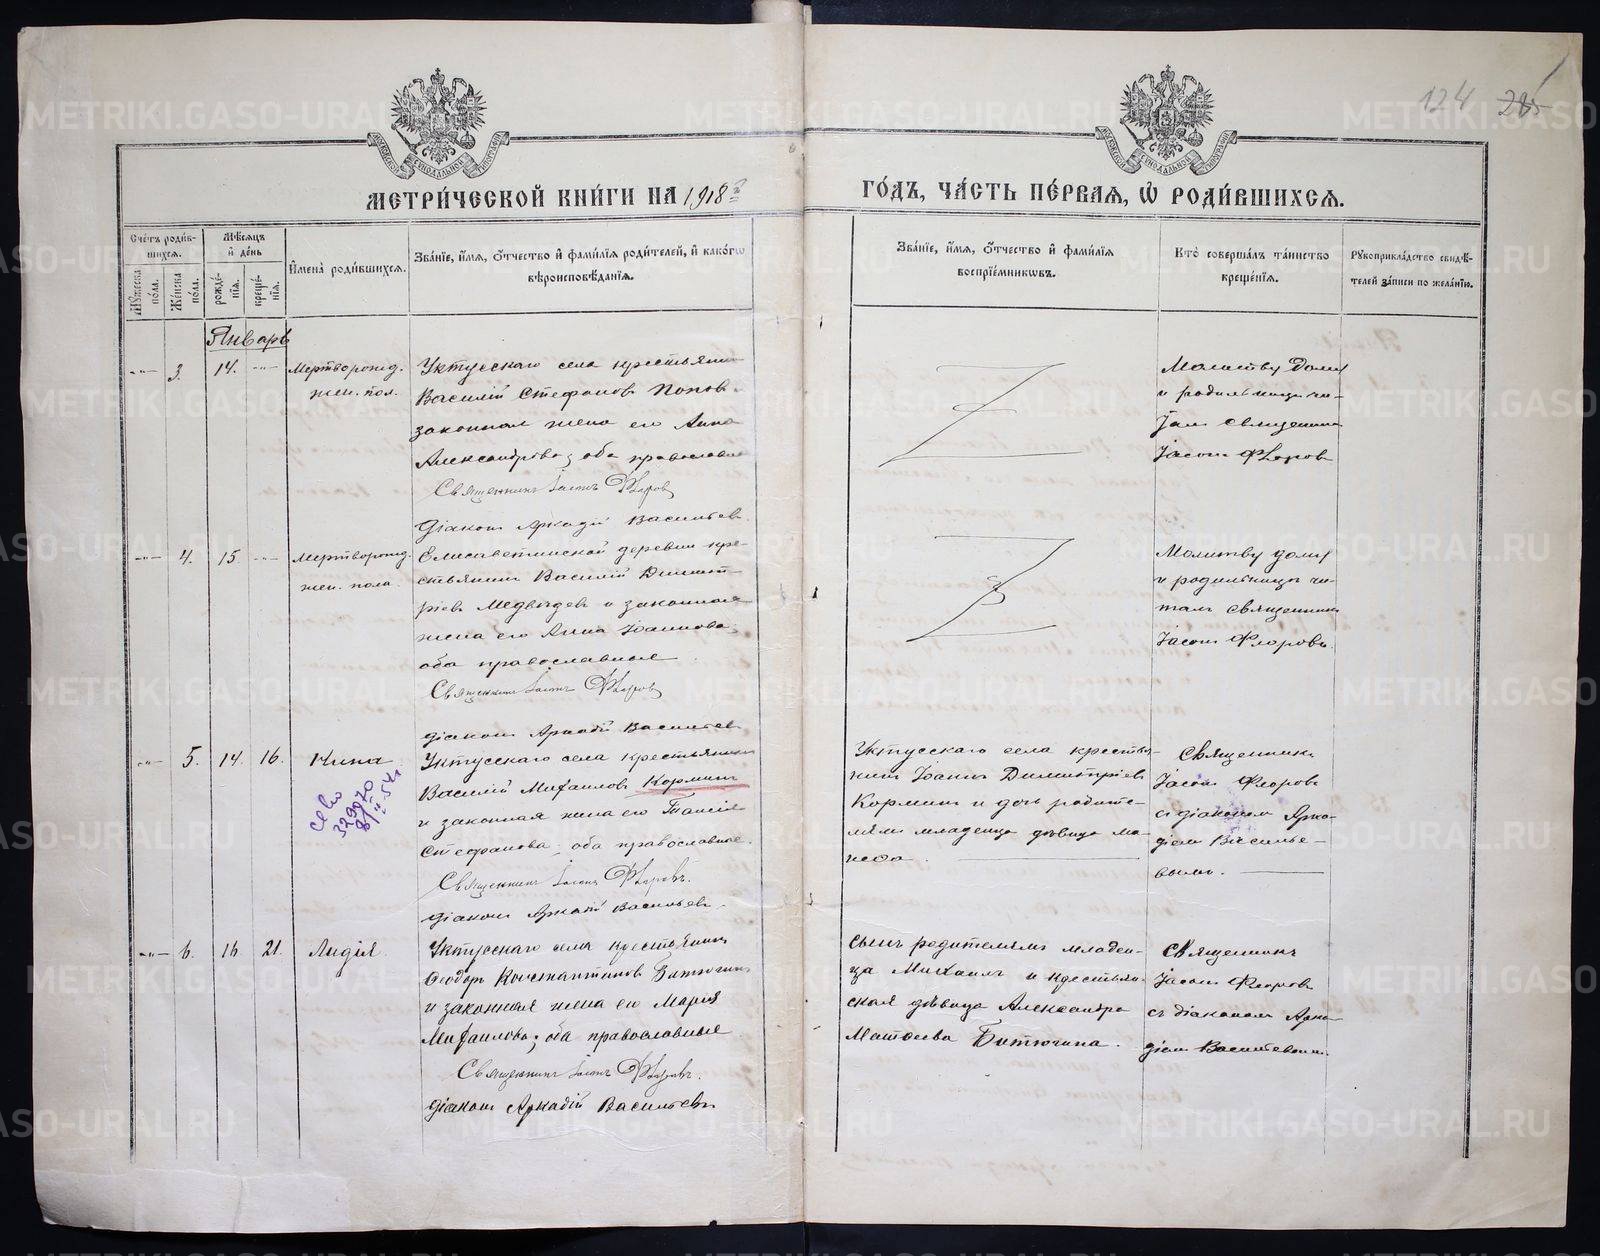 124 285
МЕТРИ́ЧЕСКОЙ КНИ́ГИ НА 1918 ГО́ДЪ, ЧА́СТЬ ПЕ́РВАЯ, Ѡ҆ РОДИ́ВШИХСЯ.
Сче́тъ роди́вшихся.
Мꙋ́жеска по́ла.
Же́нска по́ла.
Мѣ́сяцъ и҆ де́нь
рожде́нїя.
креще́нїя.
И҆мена̀ роди́вшихся.
Зва́нїе, и҆́мя, ѻ҆́тчество и҆ фами́лїя роди́телей, и҆ како́гѡ
вѣроисповѣ́данїя.
Зва́нїе, и҆́мя, ѻ҆́тчество и҆ фами́лїя
воспрїе́мниковъ.
Кто̀ соверша́лъ та́инство
креще́нїя.
Рꙋкоприкла́дство свидѣ́-
телей за́писи по жела́нїю.
Январь
-"- 3. 14. -"- Мертворожд.
жен. пол.
Уктусскаго села крестьянин
Василій Стефанов Попов
законная жена его Анна
Александрова; оба православные
Священник Іасон Флоров
Діакон Аркадій Васильев
Молитву дому
и родильнице чи-
тал священник
Іасон Флоров
-"- 4. 15. -"- мертворожд.
жен. пола.
Елисаветинской деревни кре-
стьянин Василій Димит-
ріев Медведев и законная
жена его Анна Іоаннова;
оба православные
Священник Іасон Флоров
діакон Аркадій Васильев
Молитву дому
и родильнице чи-
тал священник
Іасон Флоров.
-"- 5. 14. 16. Нина
329970
Уктусскаго села крестьянин
Василій Михаилов Кормин
и законная жена его Таисія
Стефанова; оба православные.
Священник Іасон Флоров.
діакон Аркадій Васильев.
Уктусскаго села крестья-
нин Іоанн Димитріев
Кормин и дочь родите-
лями младенца девица
Священник
Іасон Флоров
с діаконом Арка-
діем Василье-
вым.
-"- 6. 16 21. Лидія
Уктусскаго села крестьянин
Феодор Константинов Битюгин
и законная жена его Марія
Михаилова; оба православные
Священник Іасон Флоров.
діакон Аркадій Васильев
сын родителям младен-
ца Михаил и крестьян-
ская девица Александра
Матфеева Битюгина.
Священник
Іасон Флоров
с діаконом Арка-
діем Васильевым.
METRIKI.GASO-URAL.RU